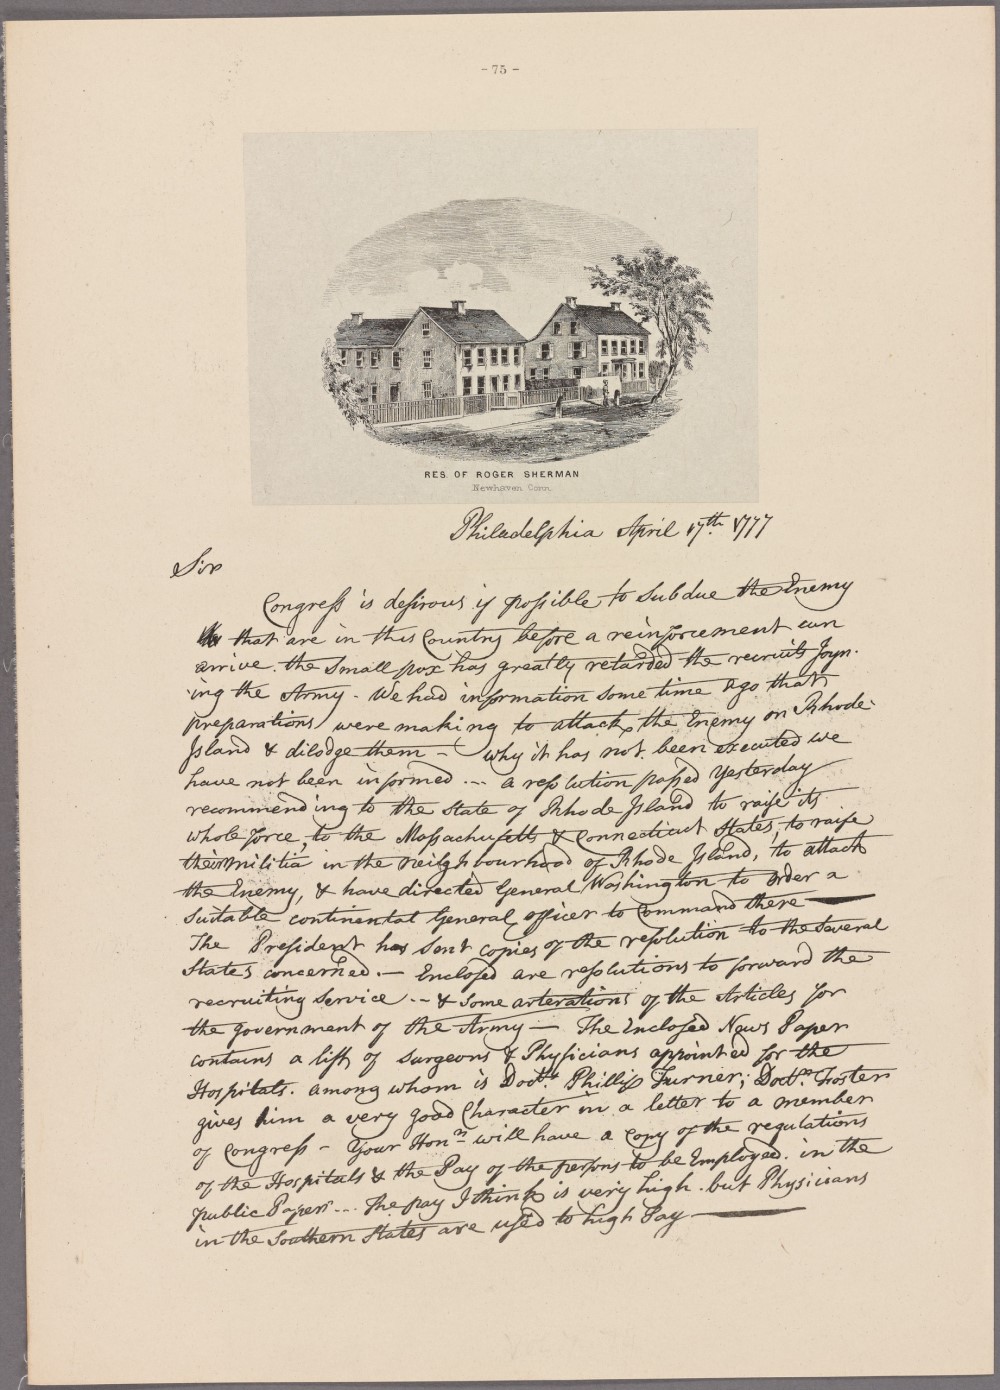 - 75 -
RES. OF ROGER SHERMAN
Newhaven Conn.
Philadelphia April 17th. 1777
Sir
Congress is desirous if possible to subdue the Enemy
that are in this Country before a reinforcement can
arrive. the Small pox has greatly retarded the recruits Joyn-
ing the Army - We had information some time ago that
preparations were making to attack the Enemy on Rhode-
Island & dilodge them - why it has not been executed we
have not been informed --- a resolution passed Yesterday
recommending to the State of Rhode Island to raise its
whole force, to the Massachusetts & Connecticut States, to raise
their militia in the neighbourhood of Rhode Island, to attack
the Enemy, & have directed General Washington to order a
suitable continental General officer to Command there —
The President has sent copies of the resolution to the Several
States concerned. — Enclosed are resolutions to forward the
recruiting service -- & some alterations of the Articles for
the government of the Army — The Enclosed News Paper
contains a list of surgeons & Physicians appointed for the
Hospitals. among whom is Doctr. Phillip Turner; Doctr. Foster
gives him a very good Character in a letter to a member
of Congress - Your Honr. will have a copy of the regulations
of the Hospitals & the Pay of the persons to be Employed. in the
public Papers --- The pay I think is very high. but Physicians
in the Southern States are used to high Pay —